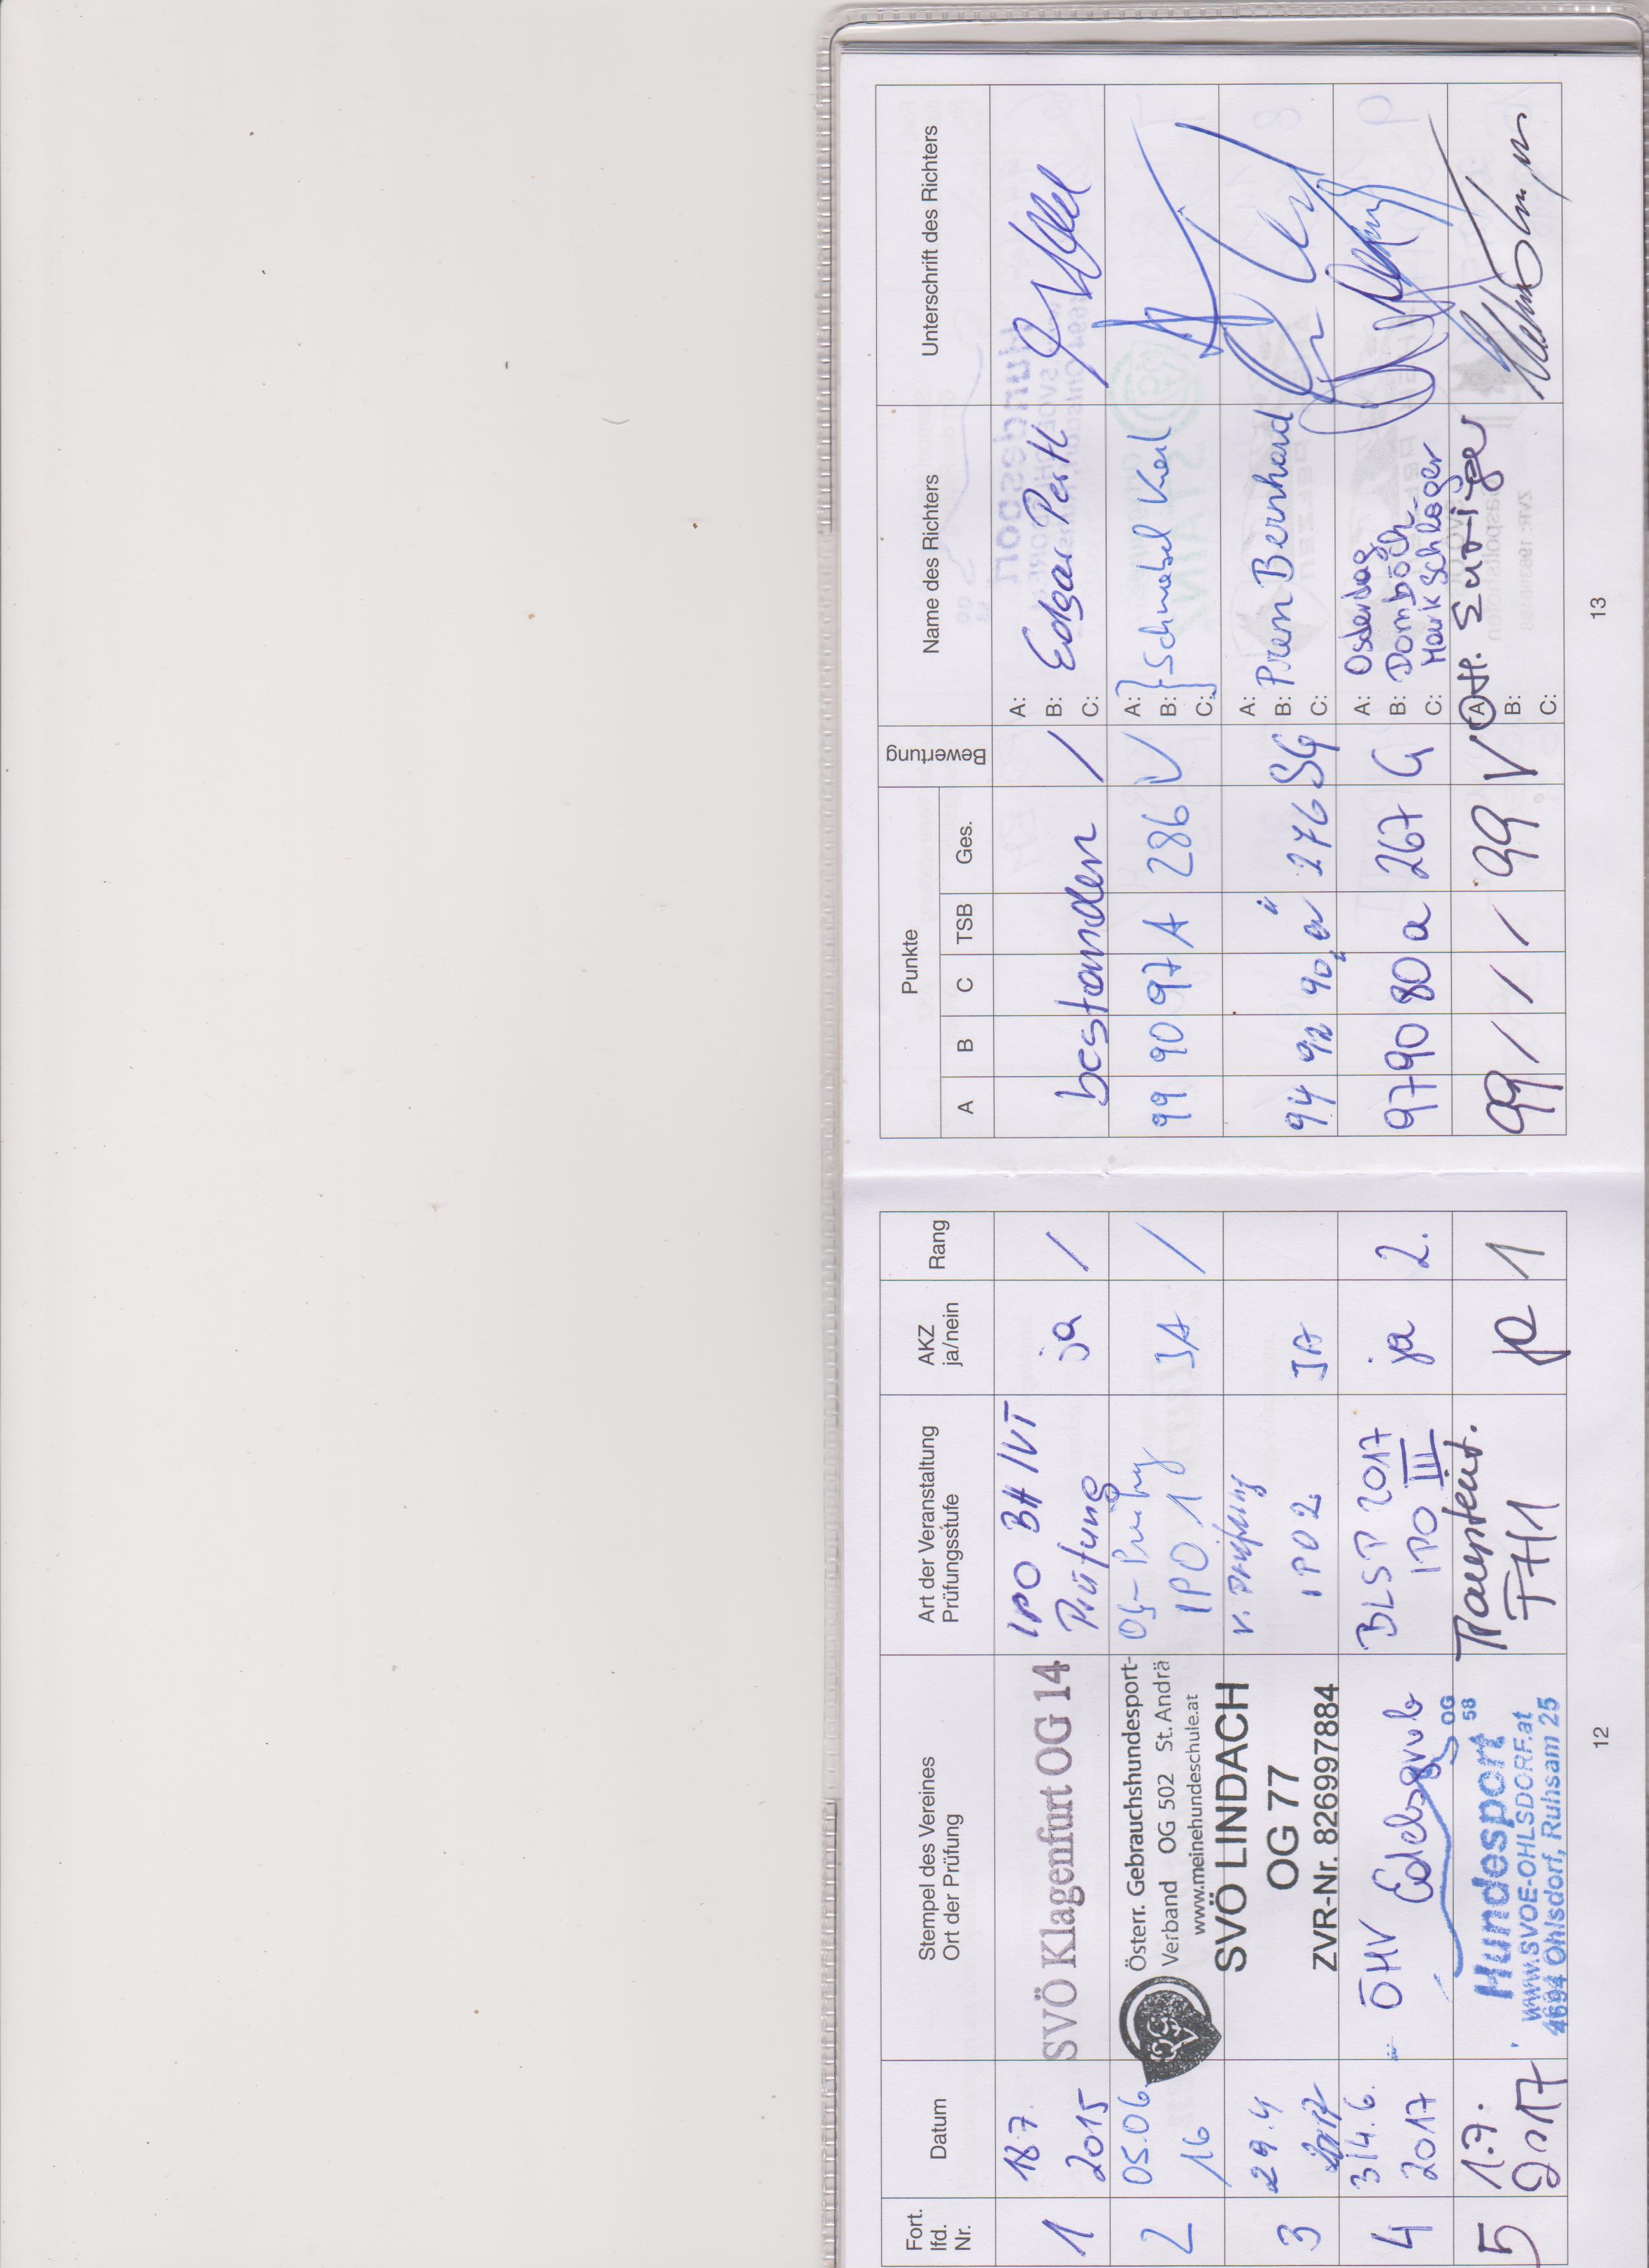 Fort. lfd. Nr.
Datum
Stempel des Vereines
Ort der Prüfung
Art der Veranstaltung
Prüfungsstufe
AKZ
ja/nein
Rang
1
18 7.
2015
SVÖ Klagenfurt OG 14
IPO BH/VT
Prüfung
ja
/
2
05.06.
16
Österr. Gebrauchshundesport-
Verband OG 502 St. Andrä
www.meinehundeschule.at
OG-
IPO 1
JA
/
3
29.4
SVÖ LINDACH
OG 77
ZVR-Nr. 826997884
IPO 2
JA
4
3/4.6.
2017
ÖHV
BLSP 2017
IPO III
ja
2.
5
1.7.
2017
OG
58
Hundesport
www.SVOE-OHLSDORF.at
4694 Ohlsdorf, Ruhsam 25
FH1
ja
1
12
Punkte
Bewertung
Name des Richters
Unterschrift des Richters
A
B
C
TSB
Ges.
bestanden
/
A:
B: Edgar Pertl
C:
99 90 97 A 286 V
A:
B: Schnabel Karl
C:
94 92 90 276 SG
A:
B: Prem Bernhard
C:
97 90 80 a 267 G
A: Ostertag
B:
C:
99 / / / 99 V
A:
B:
C:
13